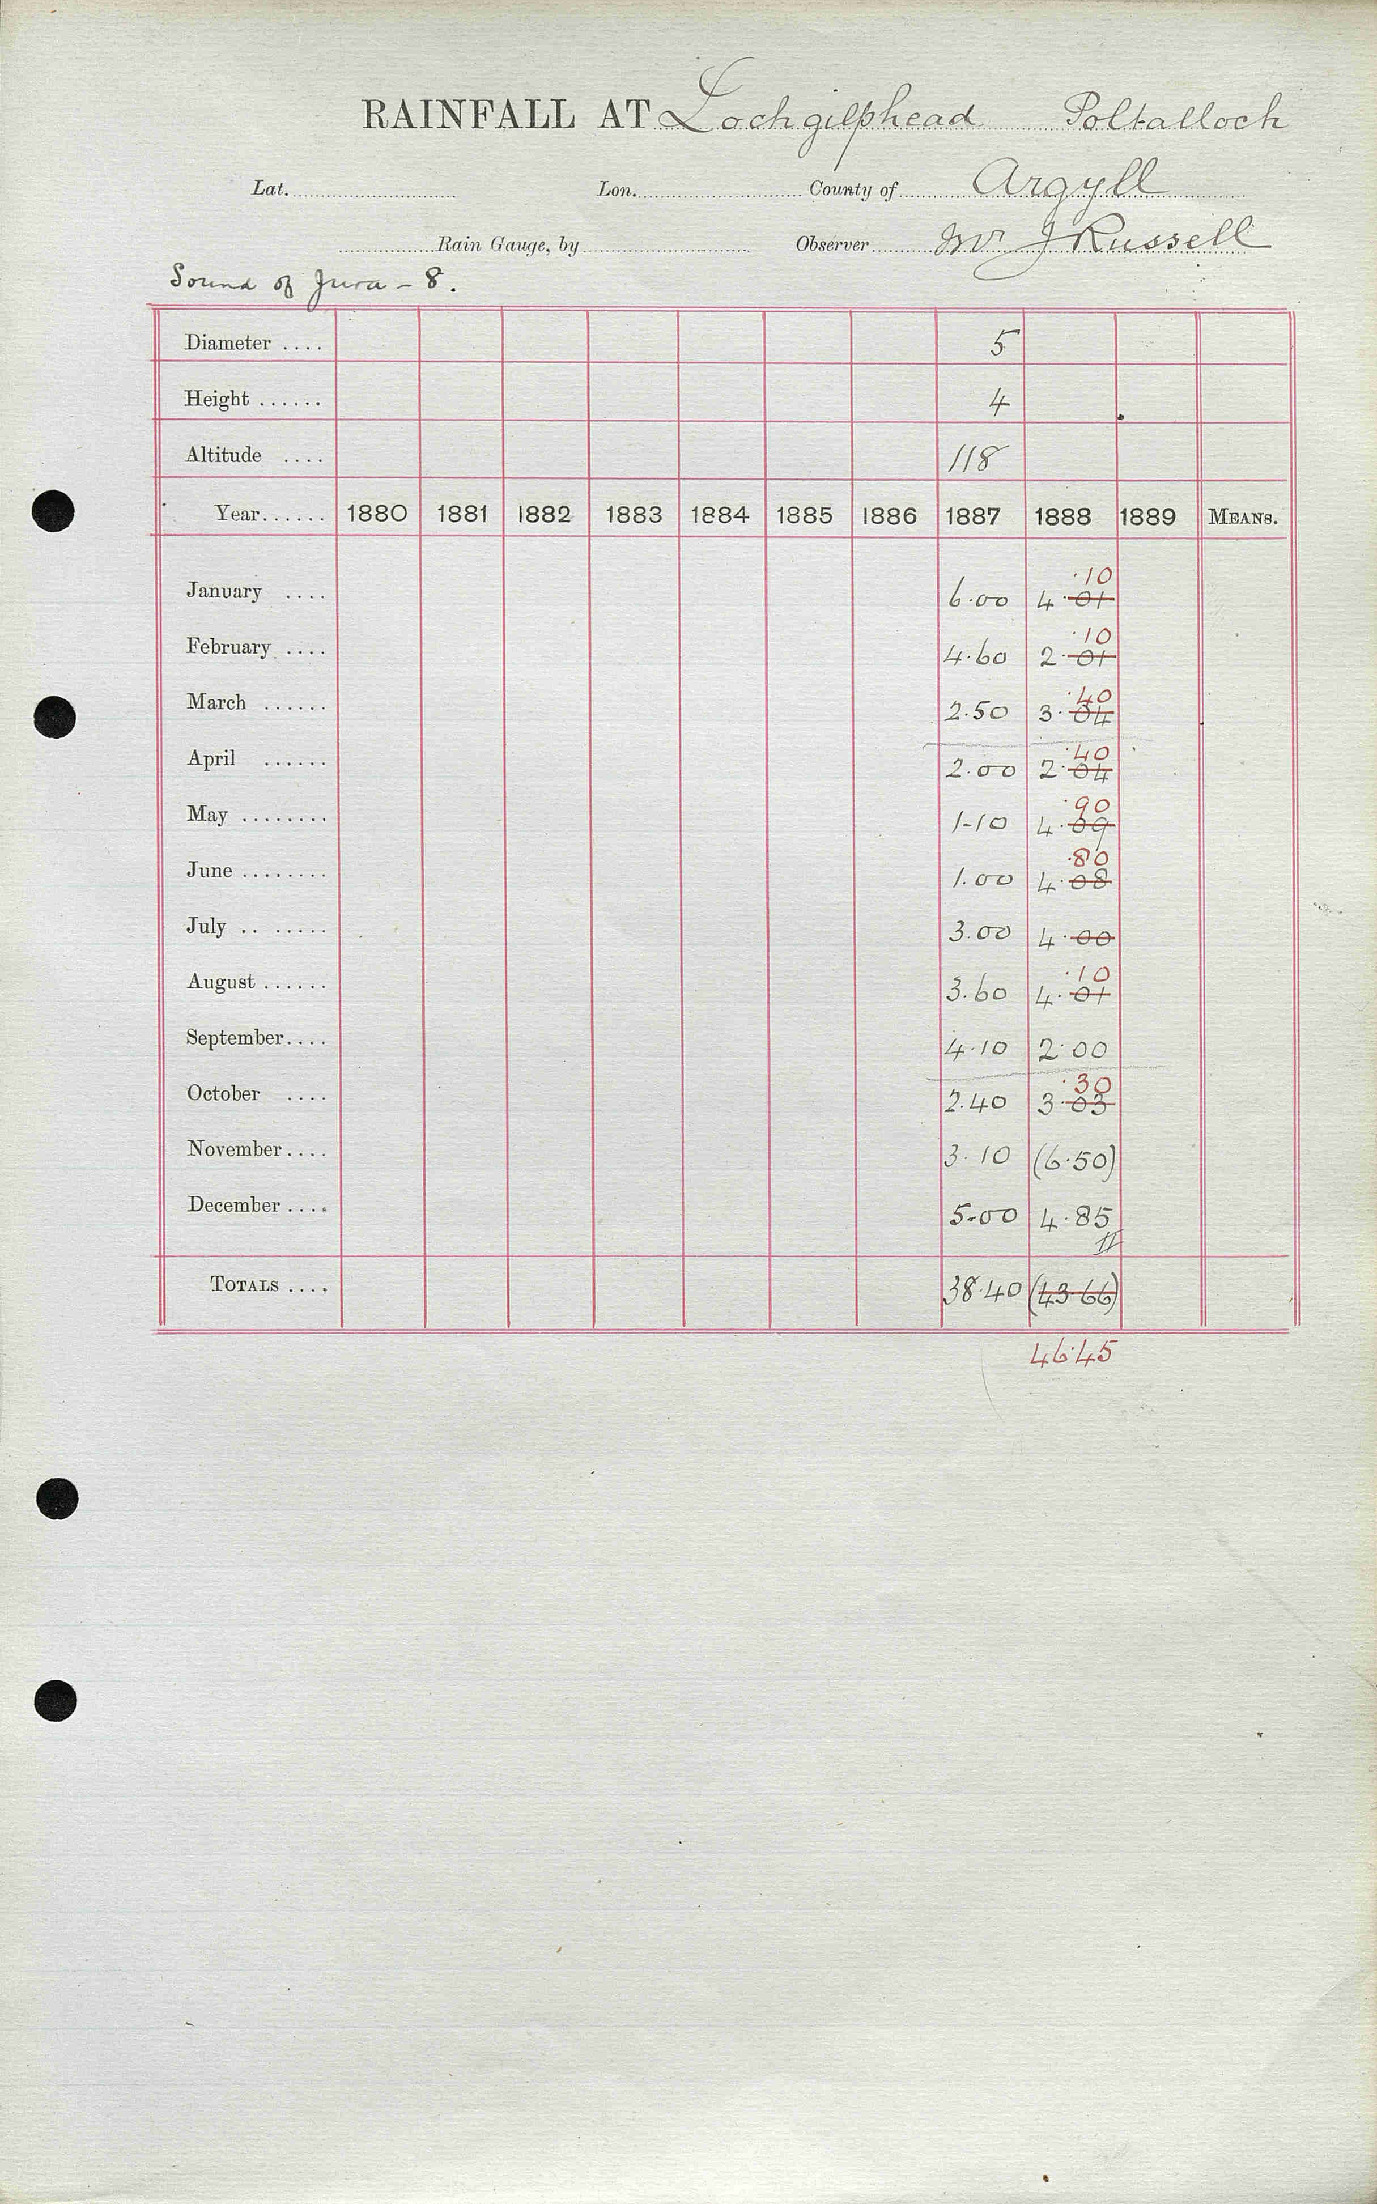 RAINFALL AT Lochgilphead Poltalloch
Lat. Lon. County of Argyll
Rain Gauge, by Observer Mr J Russell
Sound of Jura - 8.
Diameter .... 5
Height ...... 4
Altitude .... 118
Year...... 1880 1881 1882 1883 1884 1885 1886 1887 1888 1889 MEANS.
·10
January .... 6.00 4.01
·10
February .... 4.60 2.01
·40
March ...... 2.50 3.04
·40
April ...... 2.00 2.04
·90
May ........ 1-10 4.09
·80
June ........ 1.00 4.08
July .. ...... 3.00 4.00
·10
August ...... 3.60 4.01
September.... 4.10 2.00
·30
October .... 2.40 3.03
November.... 3.10 (6.50)
December .... 5-00 4.85
TOTALS .... 38.40 (43.66)
46.45